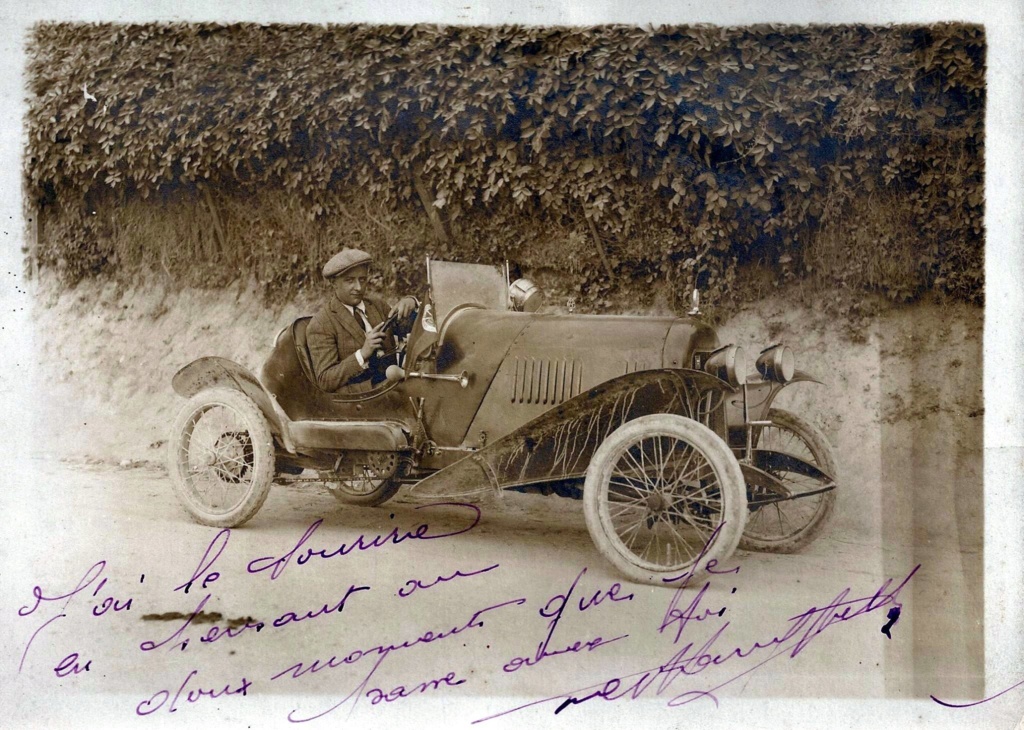 J'ai le sourire
en pensant au
doux moments que je
passe avec toi